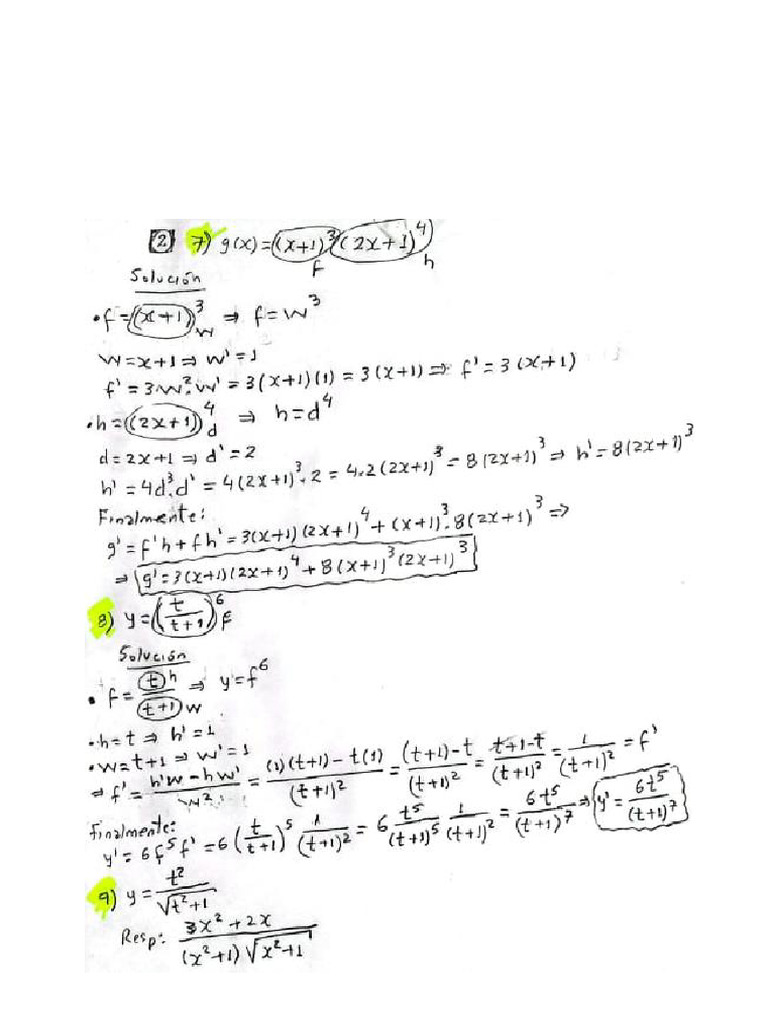 2 7) g(x) = (x+1)³ (2x+1)⁴
f h
Solución
• f = (x+1)³ w ⇒ f = w³
w = x+1 ⇒ w' = 1
f' = 3w².w' = 3(x+1)(1) = 3(x+1) ⇒ f' = 3(x+1)
• h = (2x+1)⁴ d ⇒ h = d⁴
d = 2x+1 ⇒ d' = 2
h' = 4d³.d' = 4(2x+1)³.2 = 4.2(2x+1)³ = 8(2x+1)³ ⇒ h' = 8(2x+1)³
Finalmente:
g' = f'h + fh' = 3(x+1)(2x+1)⁴ + (x+1)³.8(2x+1)³ ⇒
⇒ g' = 3(x+1)(2x+1)⁴ + 8(x+1)³(2x+1)³
8) y = (t/(t+1))⁶ f
Solución
• f = t h/(t+1) w ⇒ y = f⁶
• h = t ⇒ h' = 1
• w = t+1 ⇒ w' = 1
⇒ f' = (h'w - hw')/w² = ((1)(t+1) - t(1))/(t+1)² = ((t+1) - t)/(t+1)² = (t+1-t)/(t+1)² = 1/(t+1)² = f'
Finalmente:
y' = 6f⁵f' = 6(t/(t+1))⁵ 1/(t+1)² = 6 t⁵/(t+1)⁵ 1/(t+1)² = 6t⁵/(t+1)⁷ ⇒ y' = 6t⁵/(t+1)⁷
9) y = t²/√(t²+1)
Resp: (3x² + 2x)/((x²+1)√(x²+1))